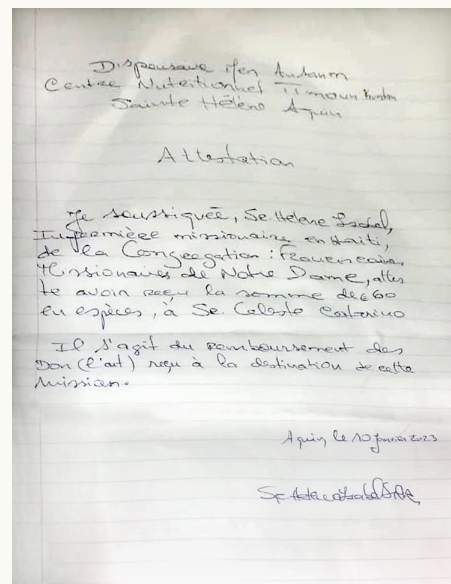 Dispensaire
Centre Nutritionnel Ti moun
Sainte Hélène Aquin
Attestation
Je soussignée, Sr Hélène
Infirmière missionaire en Haïti,
de la Congregation: Franciscaines
Missionaires de Notre Dame, attes
te avoir reçu la somme de € 60
en espèces, à Sr. Celeste
Il s'agit du remboursement des
Don (l'art) reçu à la destination de cette
mission.
Aquin, le 10 janvier 2023